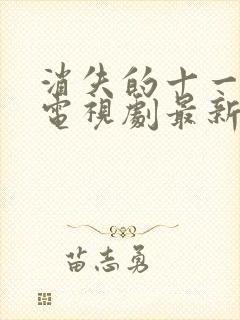 消失的十一
電視劇最新
苗志勇